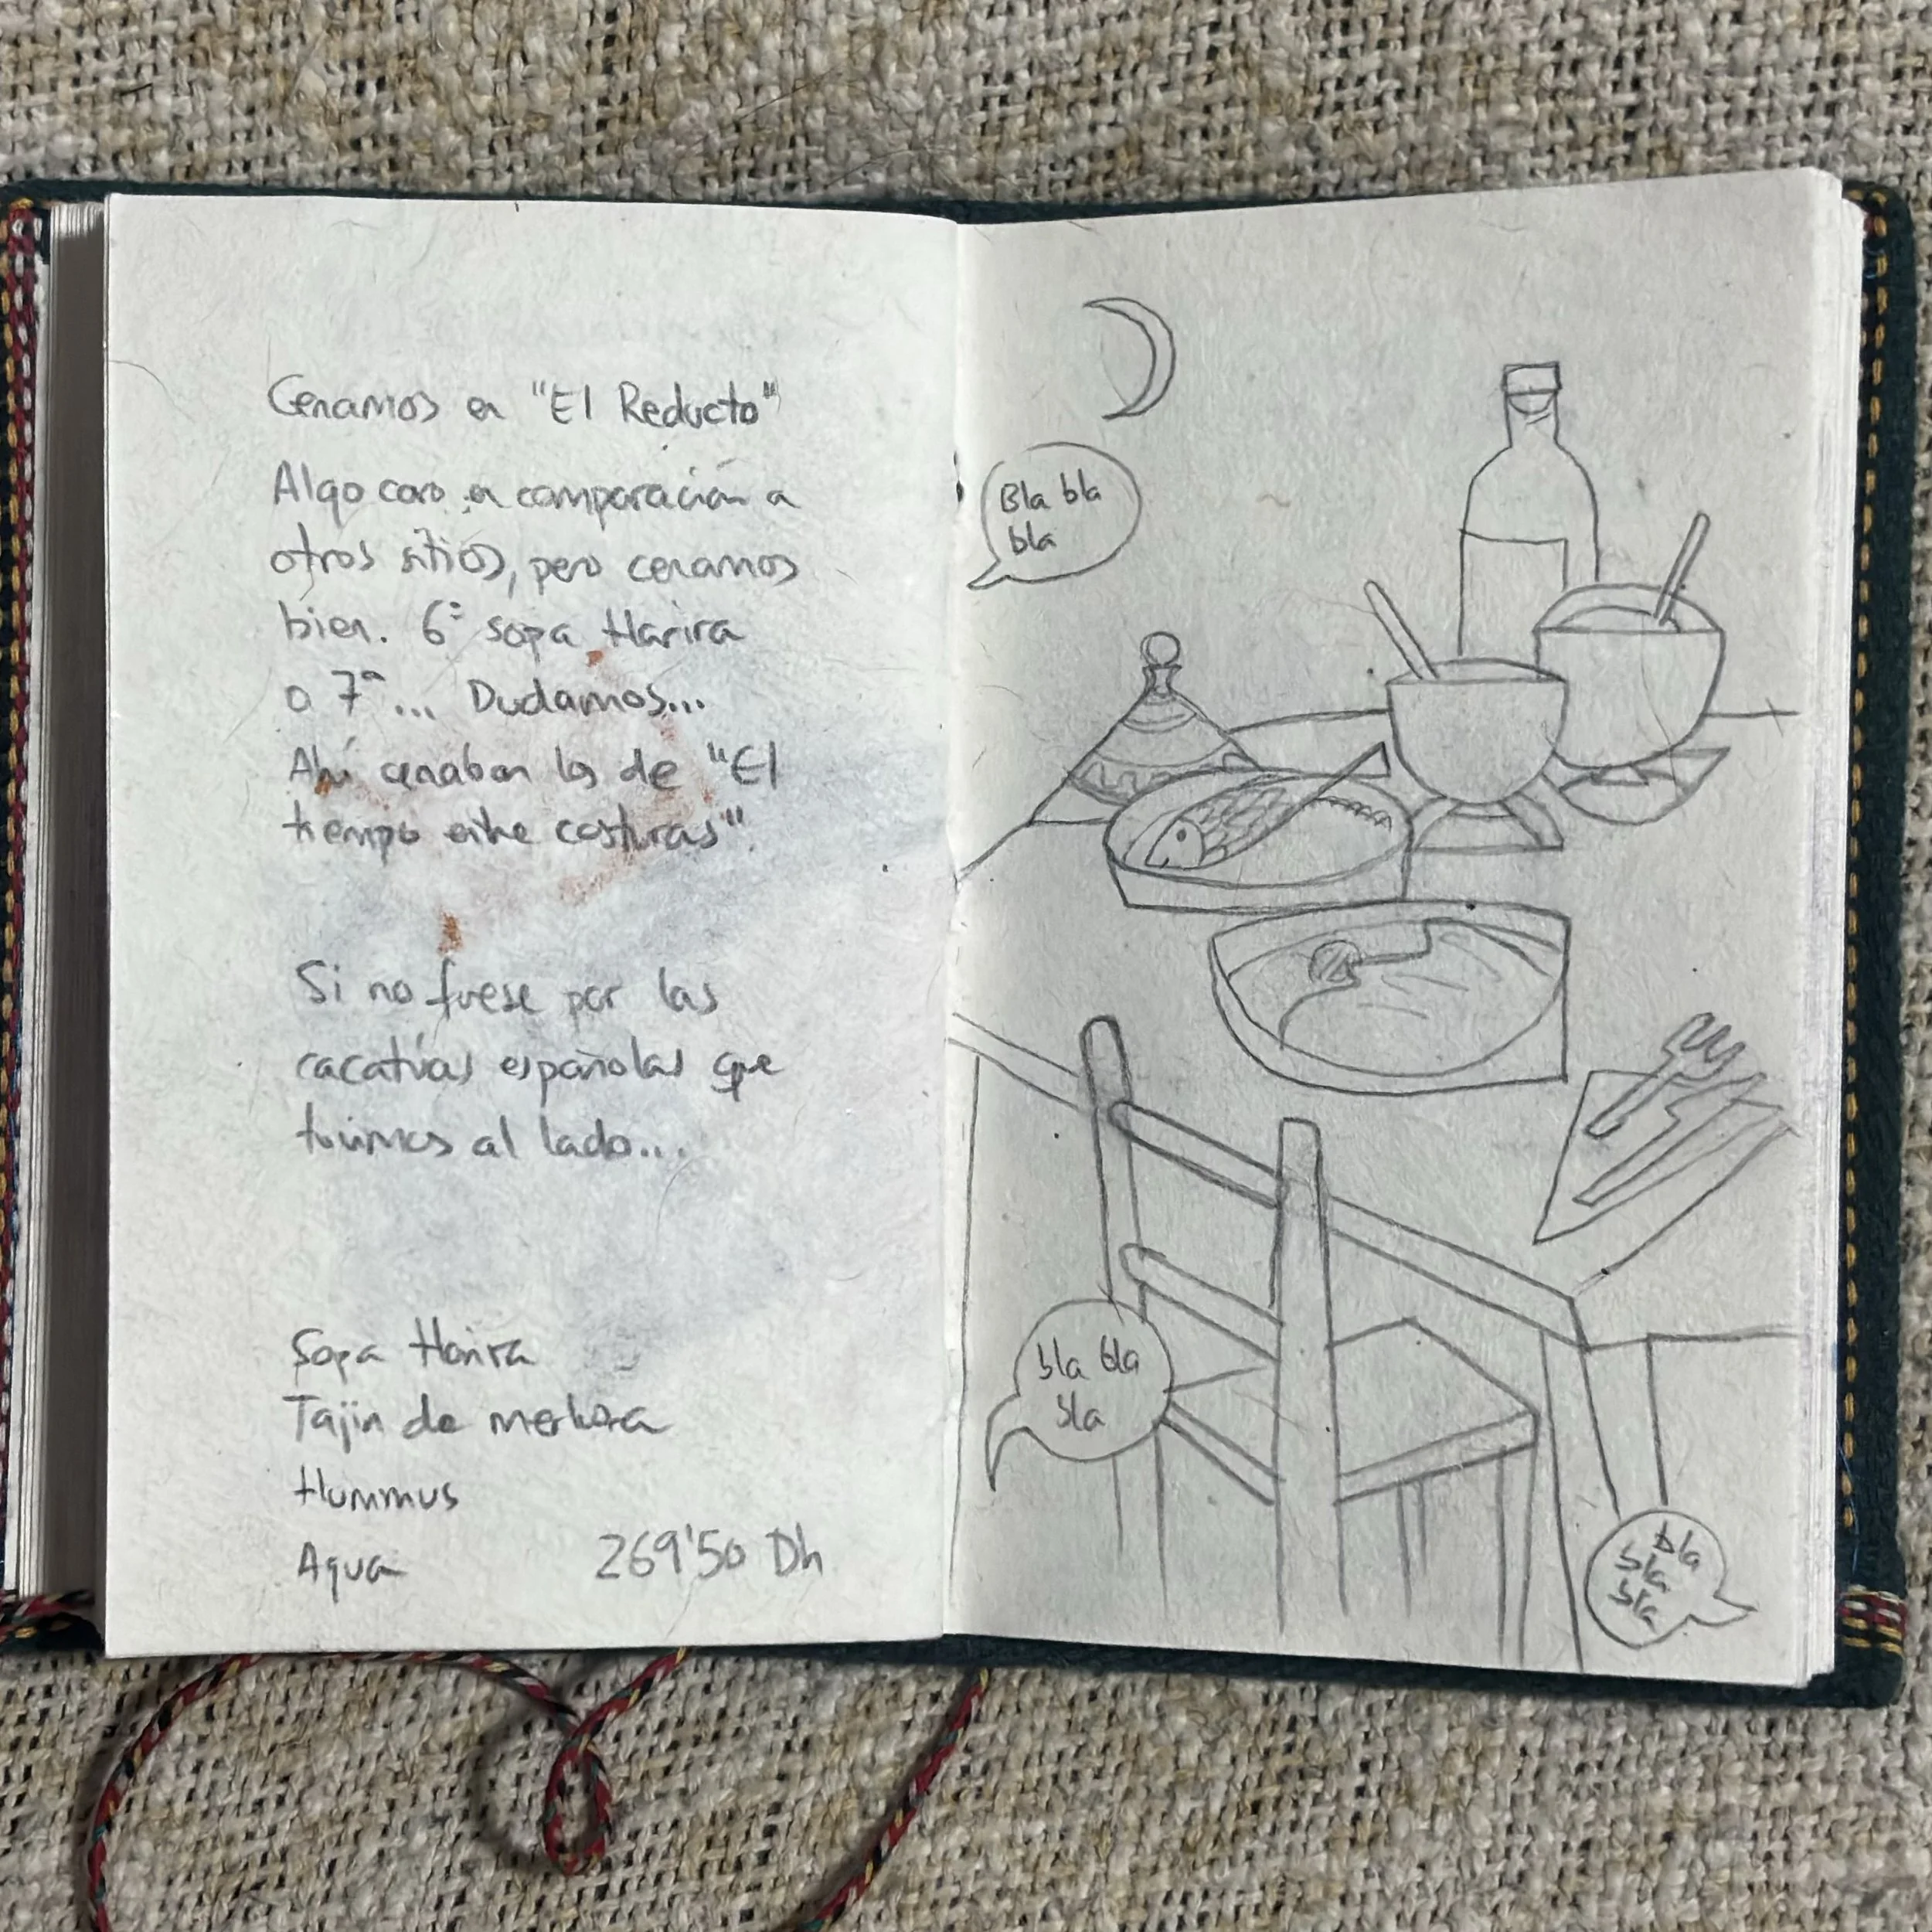 Cenamos en "El Reducto"
Algo caro en comparación a
otros sitios, pero cenamos
bien. 6ª sopa Harira
o 7ª... Dudamos...
Ahí cenaban los de "El
tiempo entre costuras".
Si no fuese por las
cacatúas españolas que
tuvimos al lado...
Sopa Harira
Tajin de merluza
Hummus
Agua 269'50 Dh
Bla bla
bla
bla bla
bla
bla
bla
bla